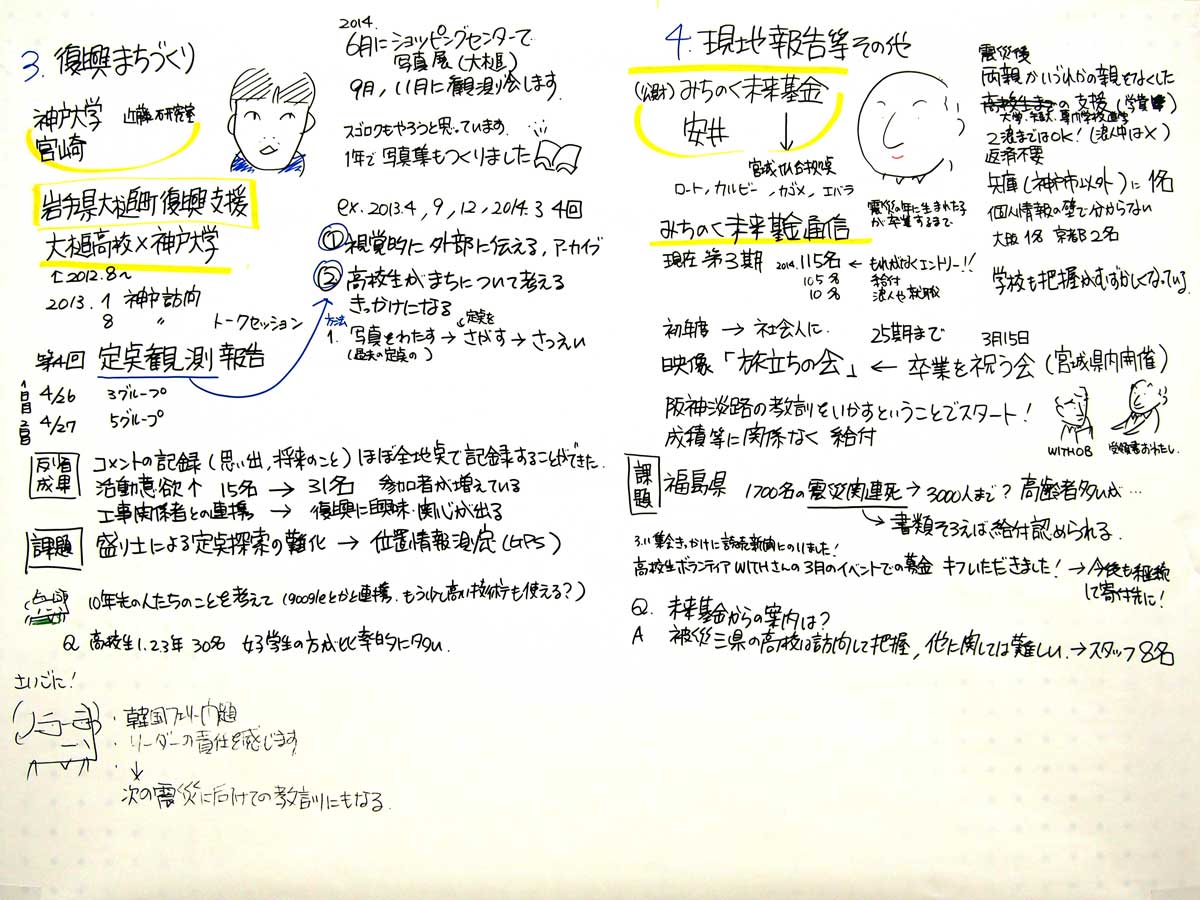 3. 復興まちづくり
神戸大学 近藤研究室
宮崎
岩手県大槌町復興支援
大槌高校×神戸大学
↑2012.8～
2013.1 神戸訪問
8 〃 トークセッション
第4回 定点観測報告
1日目 4/26 3グループ
2日目 4/27 5グループ
2014.
6月にショッピングセンターで
写真展(大槌)
9月,11月に観測会します.
スゴロクもやろうと思っています.
1年で写真集もつくりました
ex.2013.4,9,12,2014.3 4回
① 視覚的に外部に伝える,アーカイブ
② 高校生がまちについて考える
きっかけになる
方法
1. 写真をわたす→定点をさがす→さつえい
(過去の定点の)
反省 成果
コメントの記録(思い出,将来のこと)ほぼ全地点で記録することができた.
活動意欲↑ 15名→31名 参加者が増えている
工事関係者との連携 → 復興に興味・関心が出る
課題 盛り土による定点探索の難化 → 位置情報測定(GPS)
10年先の人たちのことを考えて(googleとかと連携.もう少し高い技術も使える?)
Q 高校生1.2.3年 30名 女子学生の方が比率的に多い.
さいごに!
・韓国フェリー問題
・リーダーの責任を感じます
↓
次の震災に向けての教訓にもなる.
4. 現地報告等その他
(公財)みちのく未来基金
安井
↓
宮城 仙台拠点
ロート,カルビー,カゴメ,エバラ
震災の年に生まれた子が卒業するまで
みちのく未来基金通信
現在 第3期 2014.115名 ← もれがなくエントリー!!
105名 給付
10名 浪人や就職
震災後
両親かいづれかの親をなくした
の支援(学費)
大学,短大,専門学校進学
2浪まではOK!(浪人中は×)
返済不要
兵庫(神戸市以外)に1名
個人情報の壁で分からない
大阪1名 京都2名
学校も把握がむずかしくなっている.
初年度 → 社会人に. 25期まで 3月15日
映像「旅立ちの会」← 卒業を祝う会(宮城県内開催)
阪神淡路の教訓をいかすということでスタート!
成績等に関係なく 給付
WITH OB
課題 福島県 1700名の震災関連死→3000人まで? 高齢者多いが…
→書類そろえば給付認められる.
3.11集会きっかけに読売新聞にのりました!
高校生ボランティアWITHさんの3月のイベントでの募金 キフいただきました!→今後も継続して寄付先に!
Q. 未来基金からの案内は?
A 被災三県の高校は訪問して把握,他に関しては難しい.→スタッフ8名